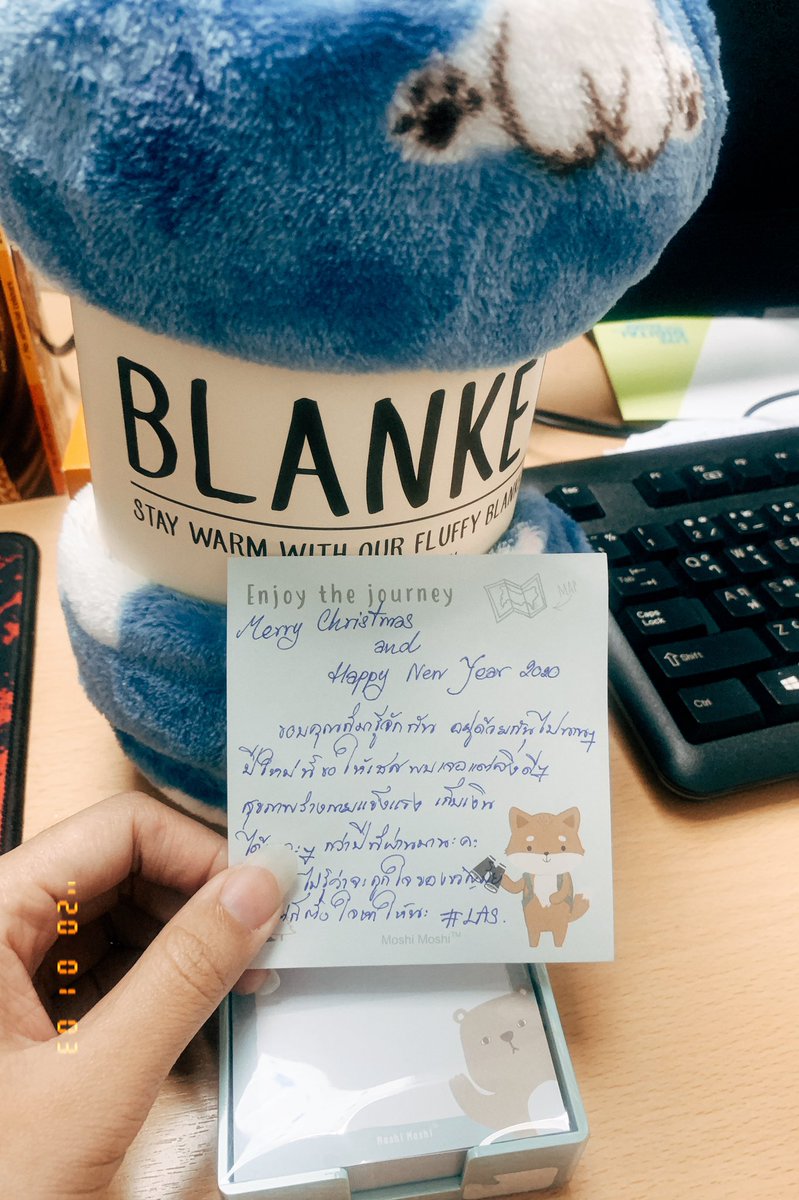 BLANKE
STAY WARM WITH OUR FLUFFY BLANK
Enjoy the journey
MAP
Merry Christmas
and
Happy New Year 2020
ขอบคุณที่มารู้จักกัน อยู่ด้วยกันไปนานๆ
ปีใหม่นี้ขอให้เธอพบเจอแต่สิ่งดีๆ
สุขภาพร่างกายแข็งแรง เก็บเงิน
ได้ กว่าปีที่ผ่านมานะคะ
ไม่รู้ว่าจะถูกใจของขวัญ
ตั้งใจ ให้นะ #LAS.
Moshi Moshi™
Moshi Moshi
Esc
Tab
Caps Lock
Shift
Ctrl
'20 01 03